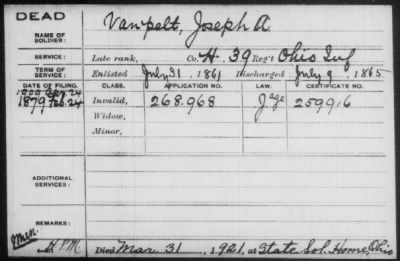 DEAD
NAME OF SOLDIER: Vanpelt, Joseph A
SERVICE: Late rank, Co. H, 39 Reg't Ohio Inf
TERM OF SERVICE: Enlisted July 31, 1861 Discharged July 9, 1865
DATE OF FILING. CLASS. APPLICATION NO. LAW. CERTIFICATE NO.
1879 Feb. 24 Invalid, 268.968 259916
Widow,
Minor,
ADDITIONAL SERVICES:
REMARKS:
Died Mar. 31, 1921, at State Sol. Home, Ohio